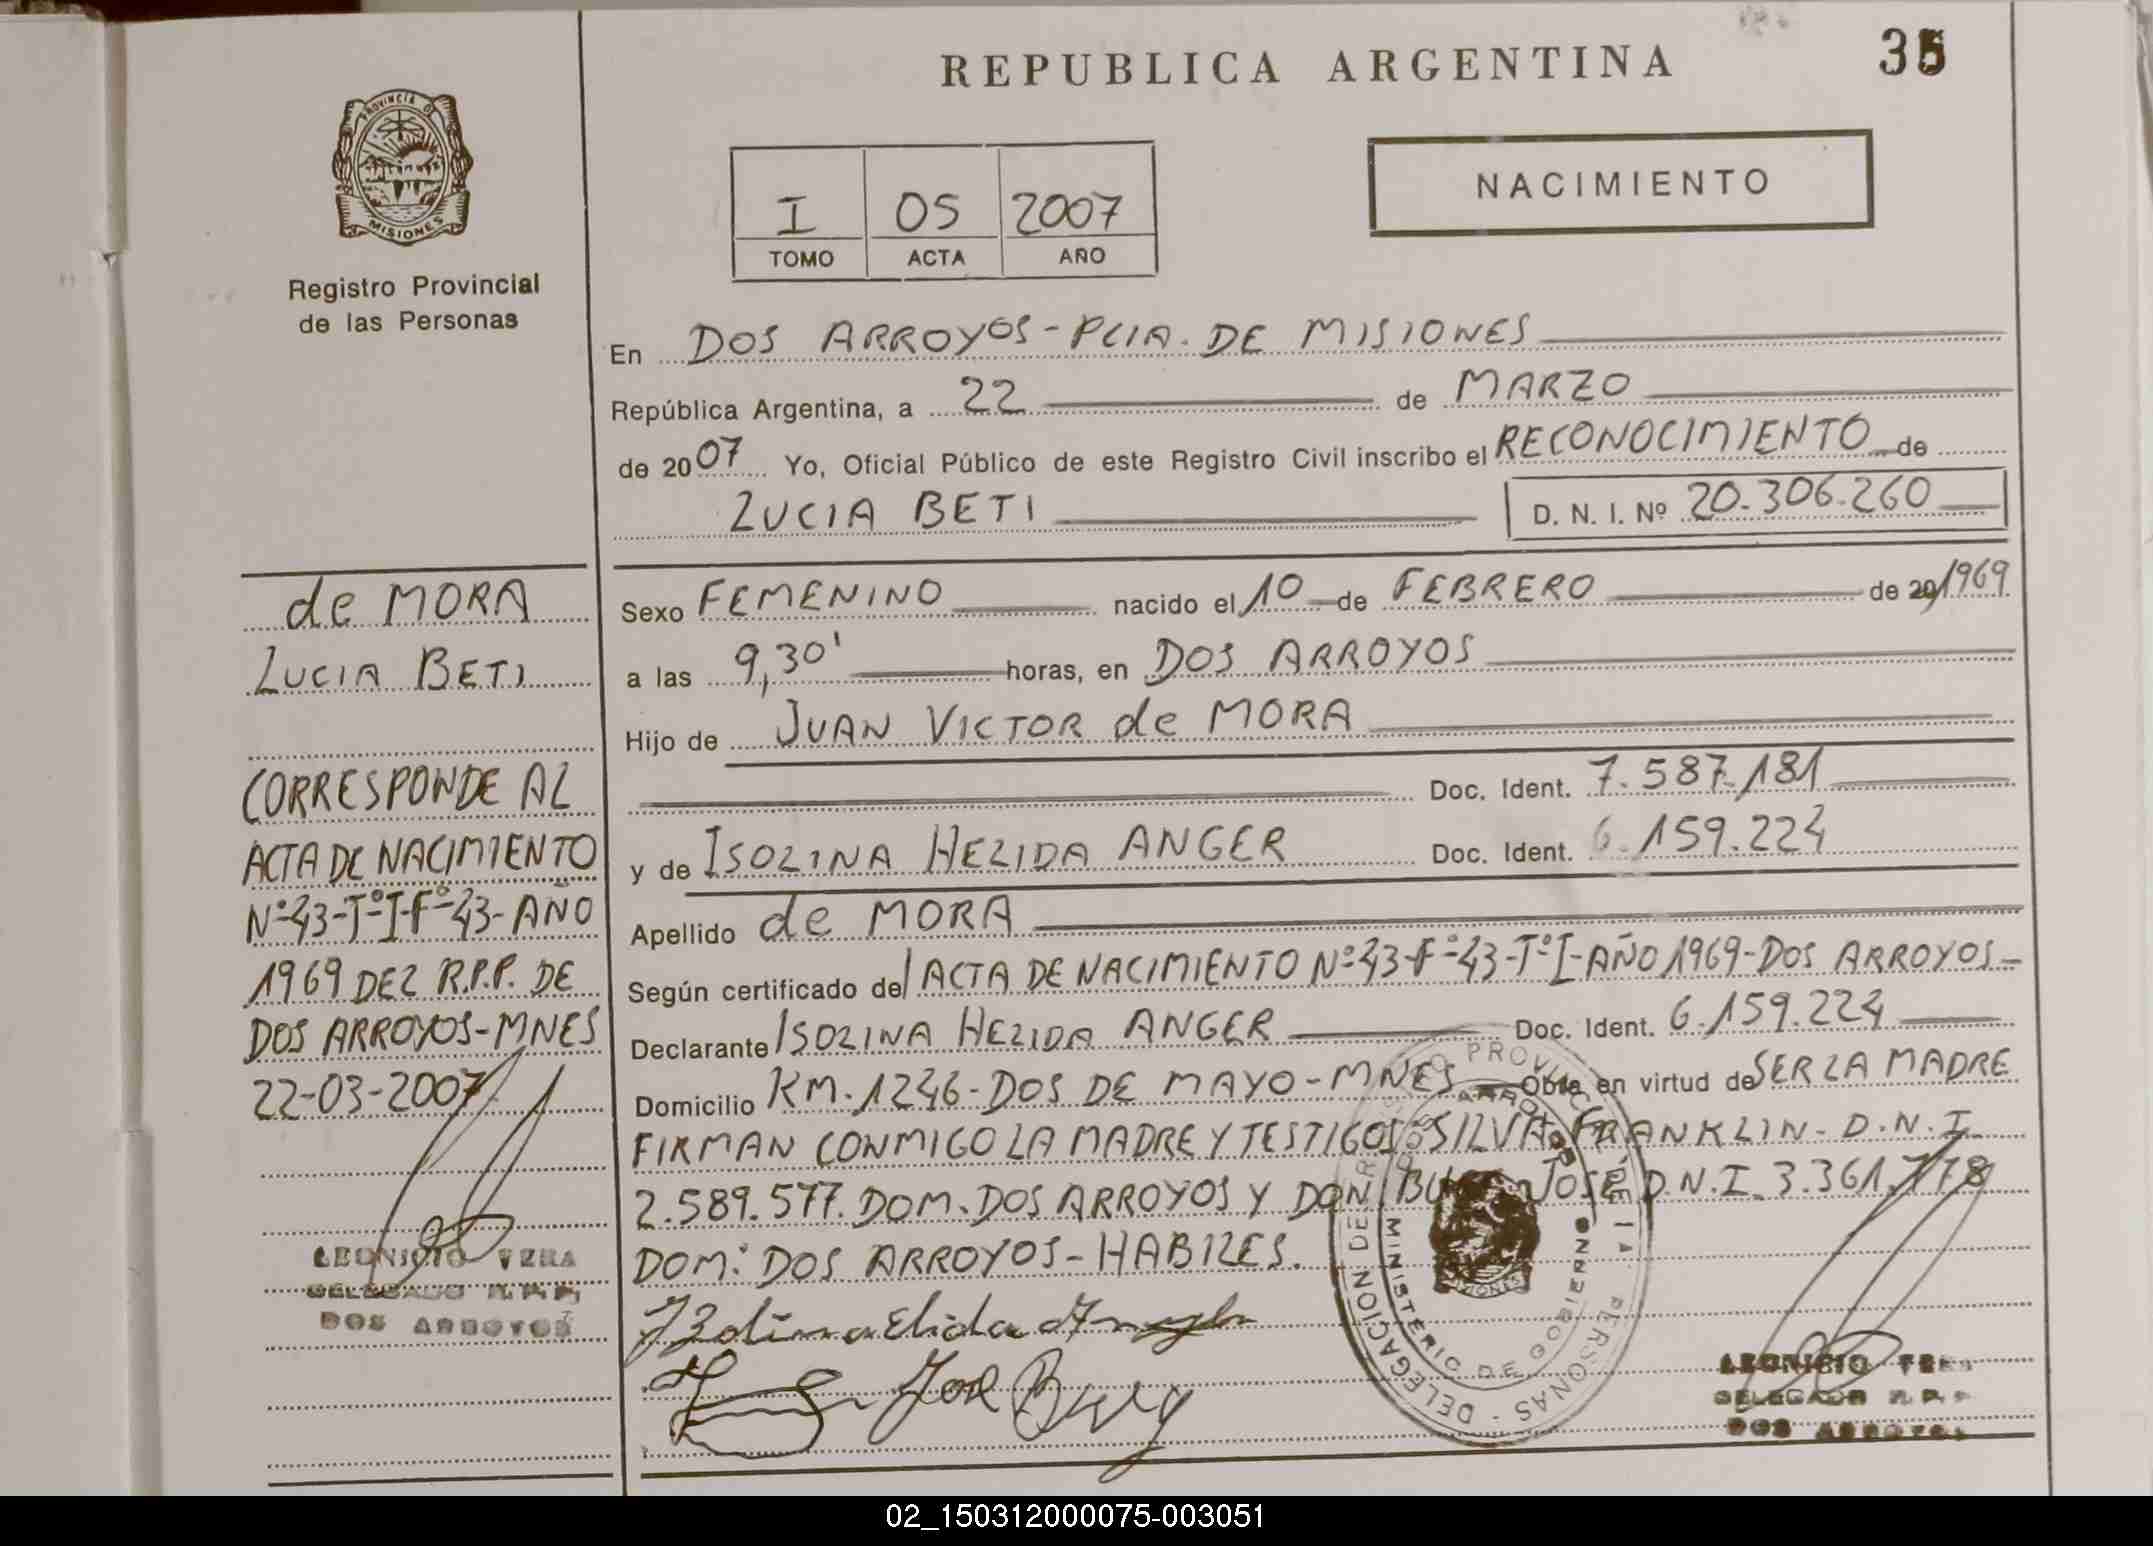 REPUBLICA ARGENTINA
35
PROVINCIA DE
MISIONES
Registro Provincial
de las Personas
I
05
2007
TOMO
ACTA
AÑO
NACIMIENTO
En DOS ARROYOS - PCIA. DE MISIONES
República Argentina, a 22 de MARZO
de 2007 Yo, Oficial Público de este Registro Civil inscribo el RECONOCIMIENTO de
LUCIA BETI D. N. I. Nº 20.306.260
Sexo FEMENINO nacido el 10 de FEBRERO de 20/1969
a las 9,30' horas, en DOS ARROYOS
Hijo de JUAN VICTOR de MORA
Doc. Ident. 7.587.181
y de ISOLINA HELIDA ANGER Doc. Ident. 6.159.224
Apellido de MORA
Según certificado del ACTA DE NACIMIENTO Nº 43-Fº-43-Tº I-AÑO 1969-DOS ARROYOS-
Declarante ISOLINA HELIDA ANGER Doc. Ident. 6.159.224
Domicilio KM.1246-DOS DE MAYO-MNES Obra en virtud de SER LA MADRE
FIRMAN CONMIGO LA MADRE Y TESTIGOS: SILVA FRANKLIN-D.N.I.
2.589.577. DOM. DOS ARROYOS Y DON JOSÉ D.N.I. 3.361.778
DOM: DOS ARROYOS-HABILES.
de MORA
LUCIA BETI
CORRESPONDE AL
ACTA DE NACIMIENTO
Nº 43-Tº I-Fº 43-AÑO
1969 DEL R.P.P. DE
DOS ARROYOS-MNES
22-03-2007
LEONICIO VERA
DELEGADO R.P.P.
DOS ARROYOS
PERSONAS - DELEGACION DE
MINISTERIO DE GOBIERNO
LEONICIO VERA
DELEGADO R.P.P.
DOS ARROYOS
02_150312000075-003051